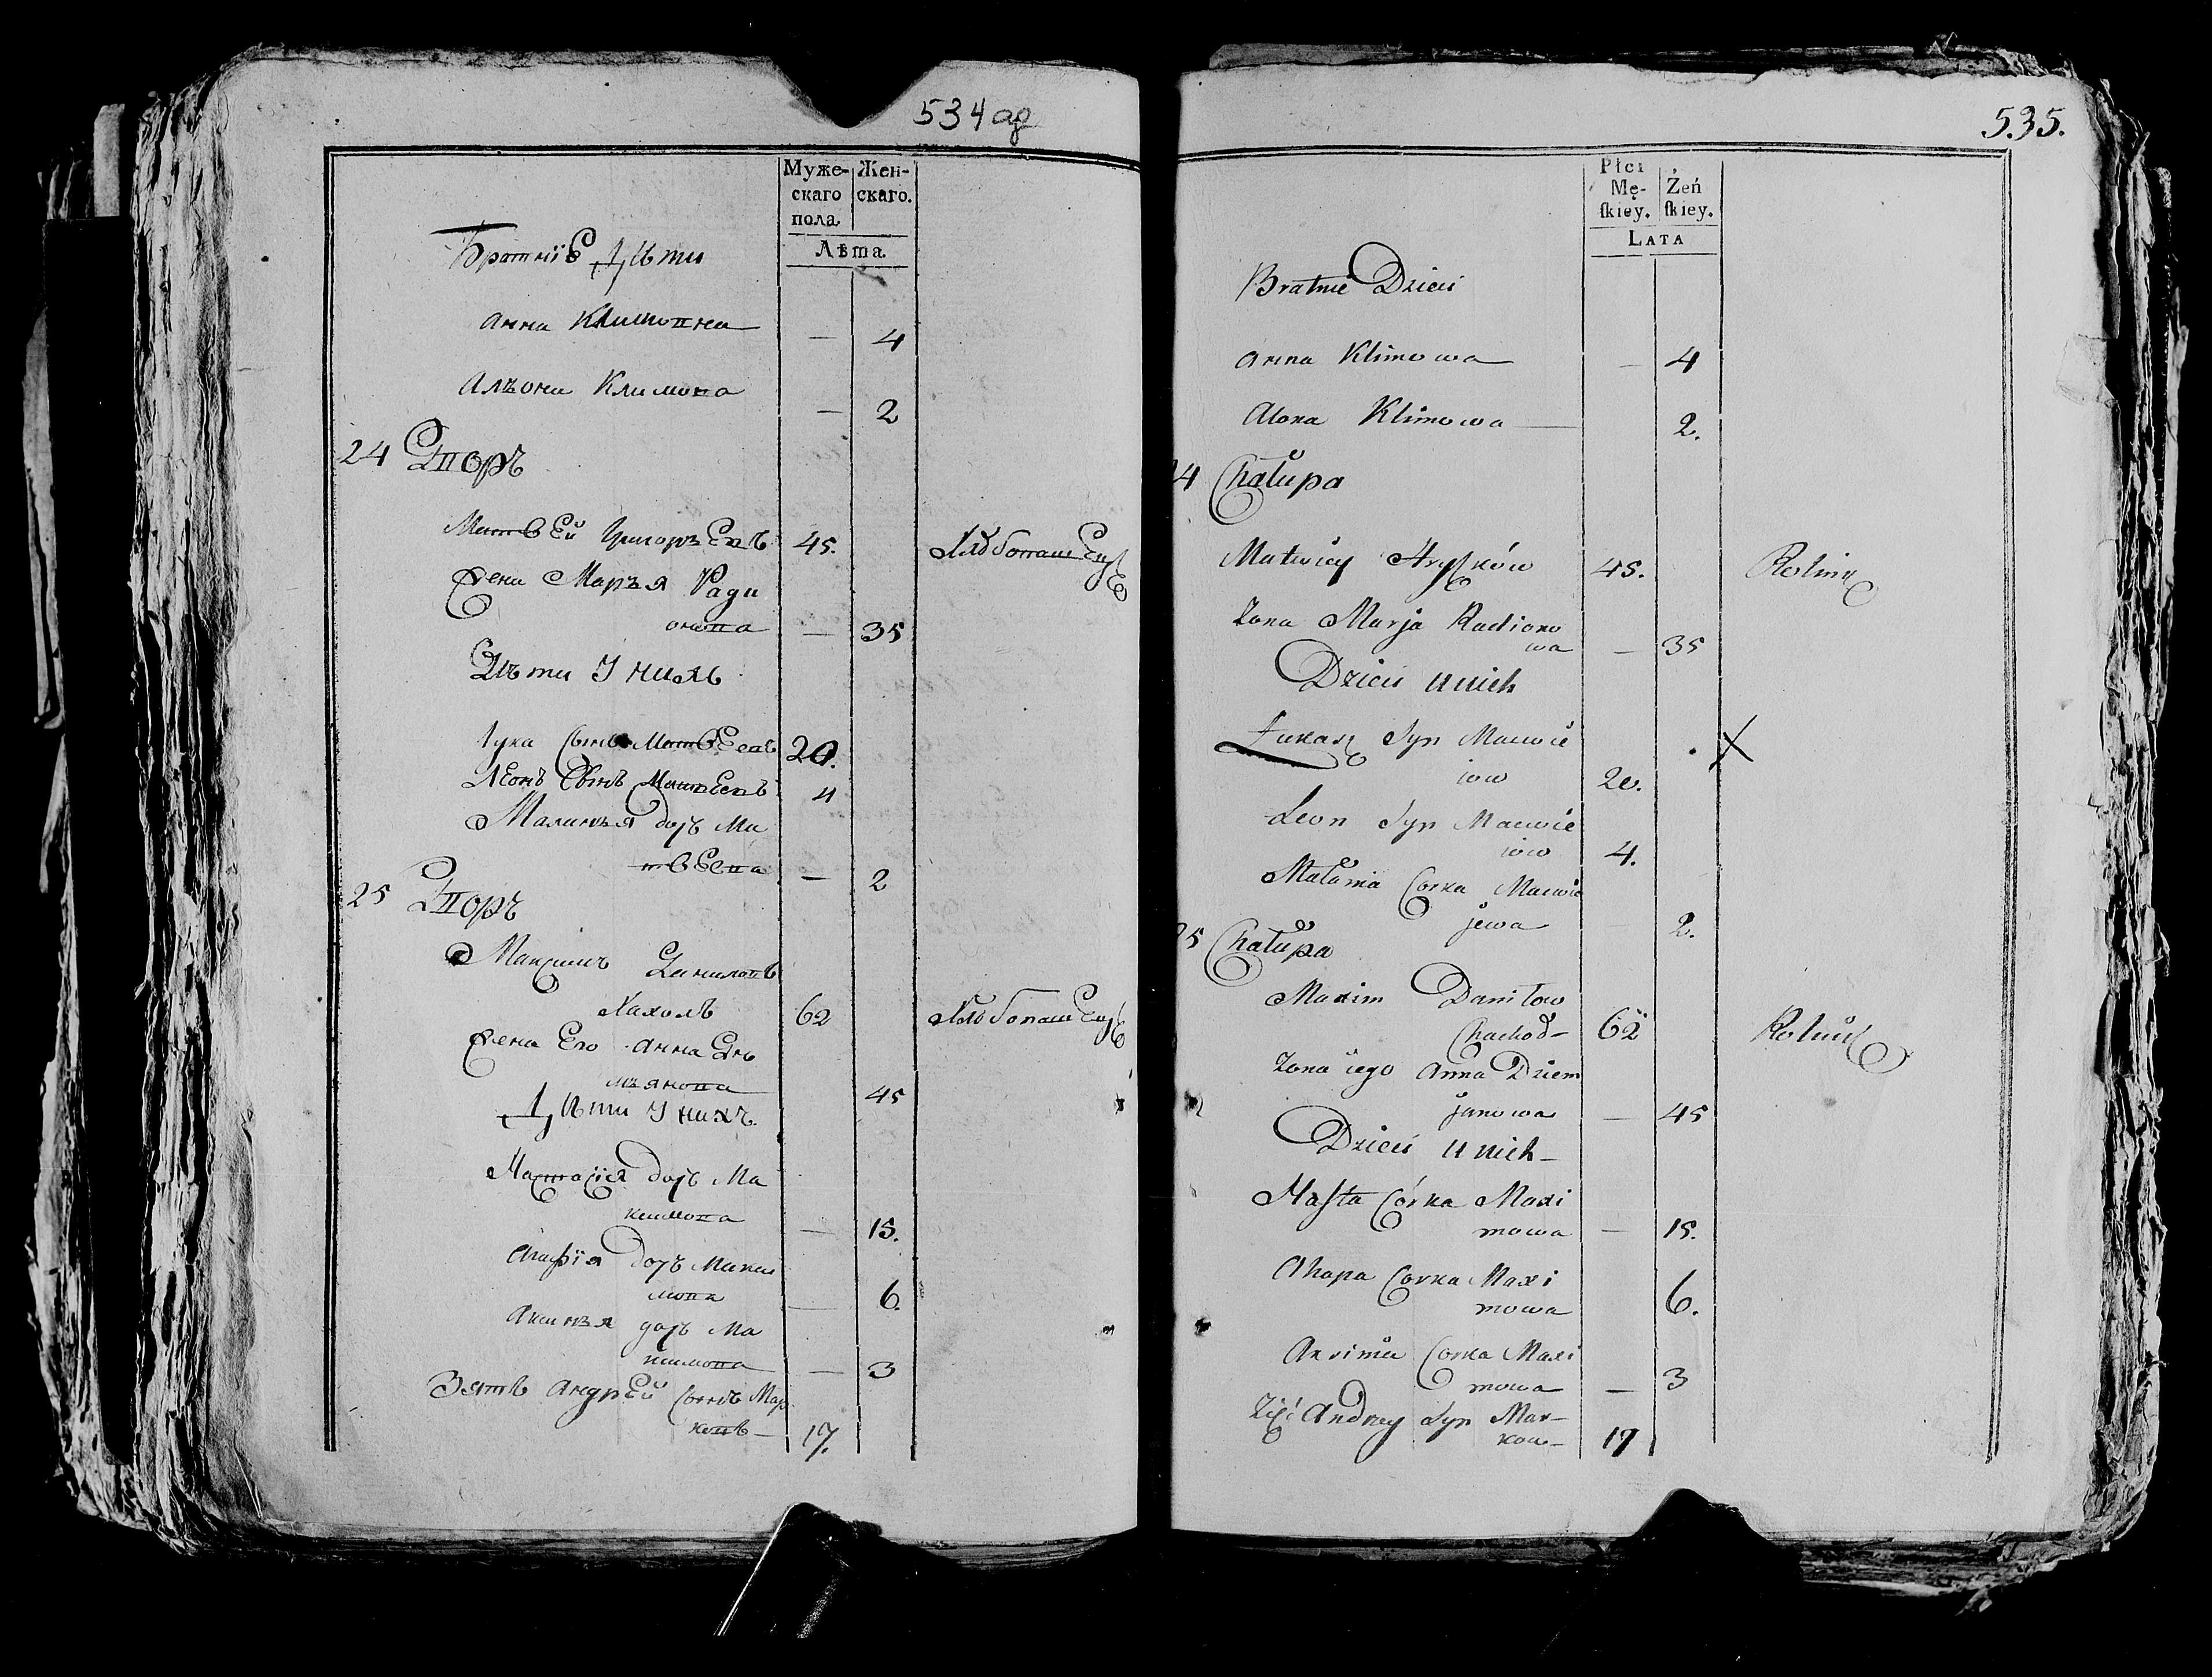 534 ад
Муже-
скаго
пола
Жен-
скаго.
Лѣта
Братніе Дѣти
Анна Климовна — 4
Алъона Климова — 2
24 Дворъ
Матвей Григорьевъ 45. Хлѣбопашецъ
Жена Марья Ради
онова — 35
Дѣти У нихъ
Лука Сынъ Матвеевъ 20.
Леонъ Сынъ Матвеевъ 4
Маланья дочь Ма
твеева — 2
25 Дворъ
Максимъ Даниловъ
Хахолъ 62 Хлѣбопашецъ
Жена Его Анна Де
мьянова 45
Дѣти У нихъ.
Настасія дочь Ма
ксимова — 15.
Агафія дочь Макси
мова — 6.
Аксинья дочь Ма
ксимова — 3
Зять Андрей Сынъ Мар
ковъ — 17.
535.
Płci
Mę-
ſkiey.
Żeń
ſkiey.
LATA
Bratnie Dzieci
Anna Klimowa — 4
Alona Klimowa — 2.
24 Chałupa
Matwiey 45. Rolnik
Żona Marja Radiono
wa — 35
Dzieci u nich
Łukasz Syn Macwie
iow 20. X
Leon Syn Macwie
iow 4.
Małania Corka Macwie
jewa — 2.
25 Chałupa
Maxim Daniłow
Chachoł — 62 Rolnik
Żona iego Anna Dziem
janowa — 45
Dzieci u nich —
Nasta Córka Maxi
mowa — 15.
Ahapa Corka Maxi
mowa 6.
Axinia Corka Maxi
mowa — 3
Zięć Andrzey Syn Mar-
kow — 17